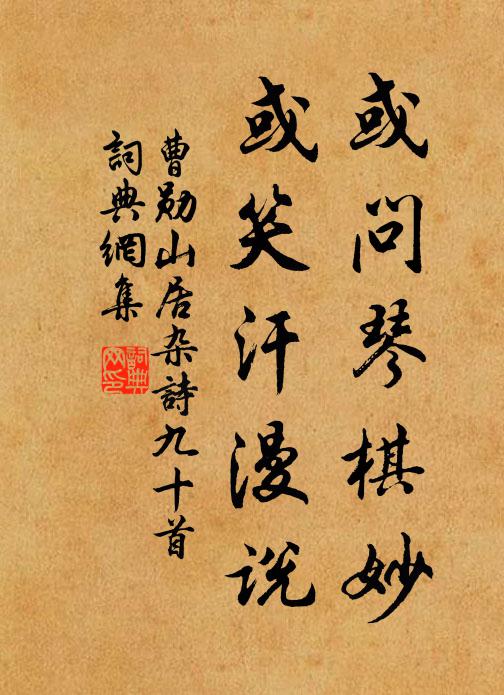 或问琴棋妙
或笑汗漫说
曹勋山居杂詩九十首
詞典網集
詞典
网印